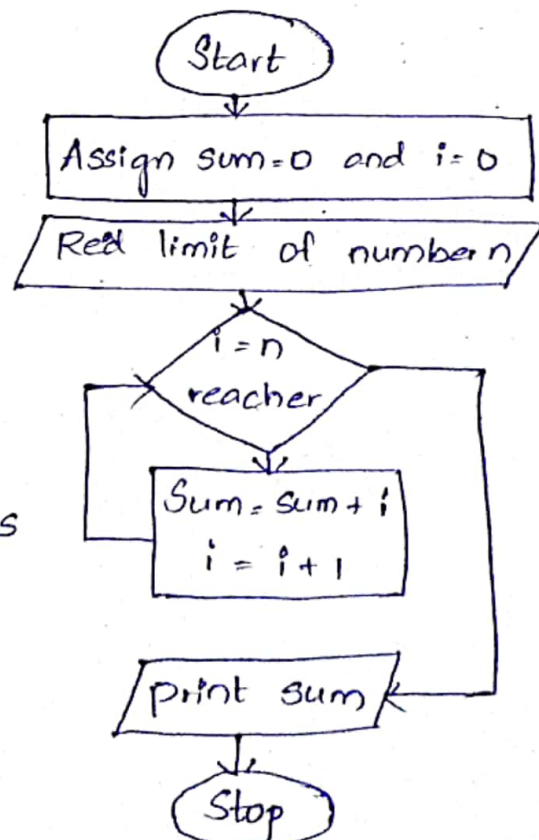 Start
Assign sum=0 and i=0
Red limit of number n
i=n
reacher
s
Sum=sum+i
i=i+1
print sum
Stop